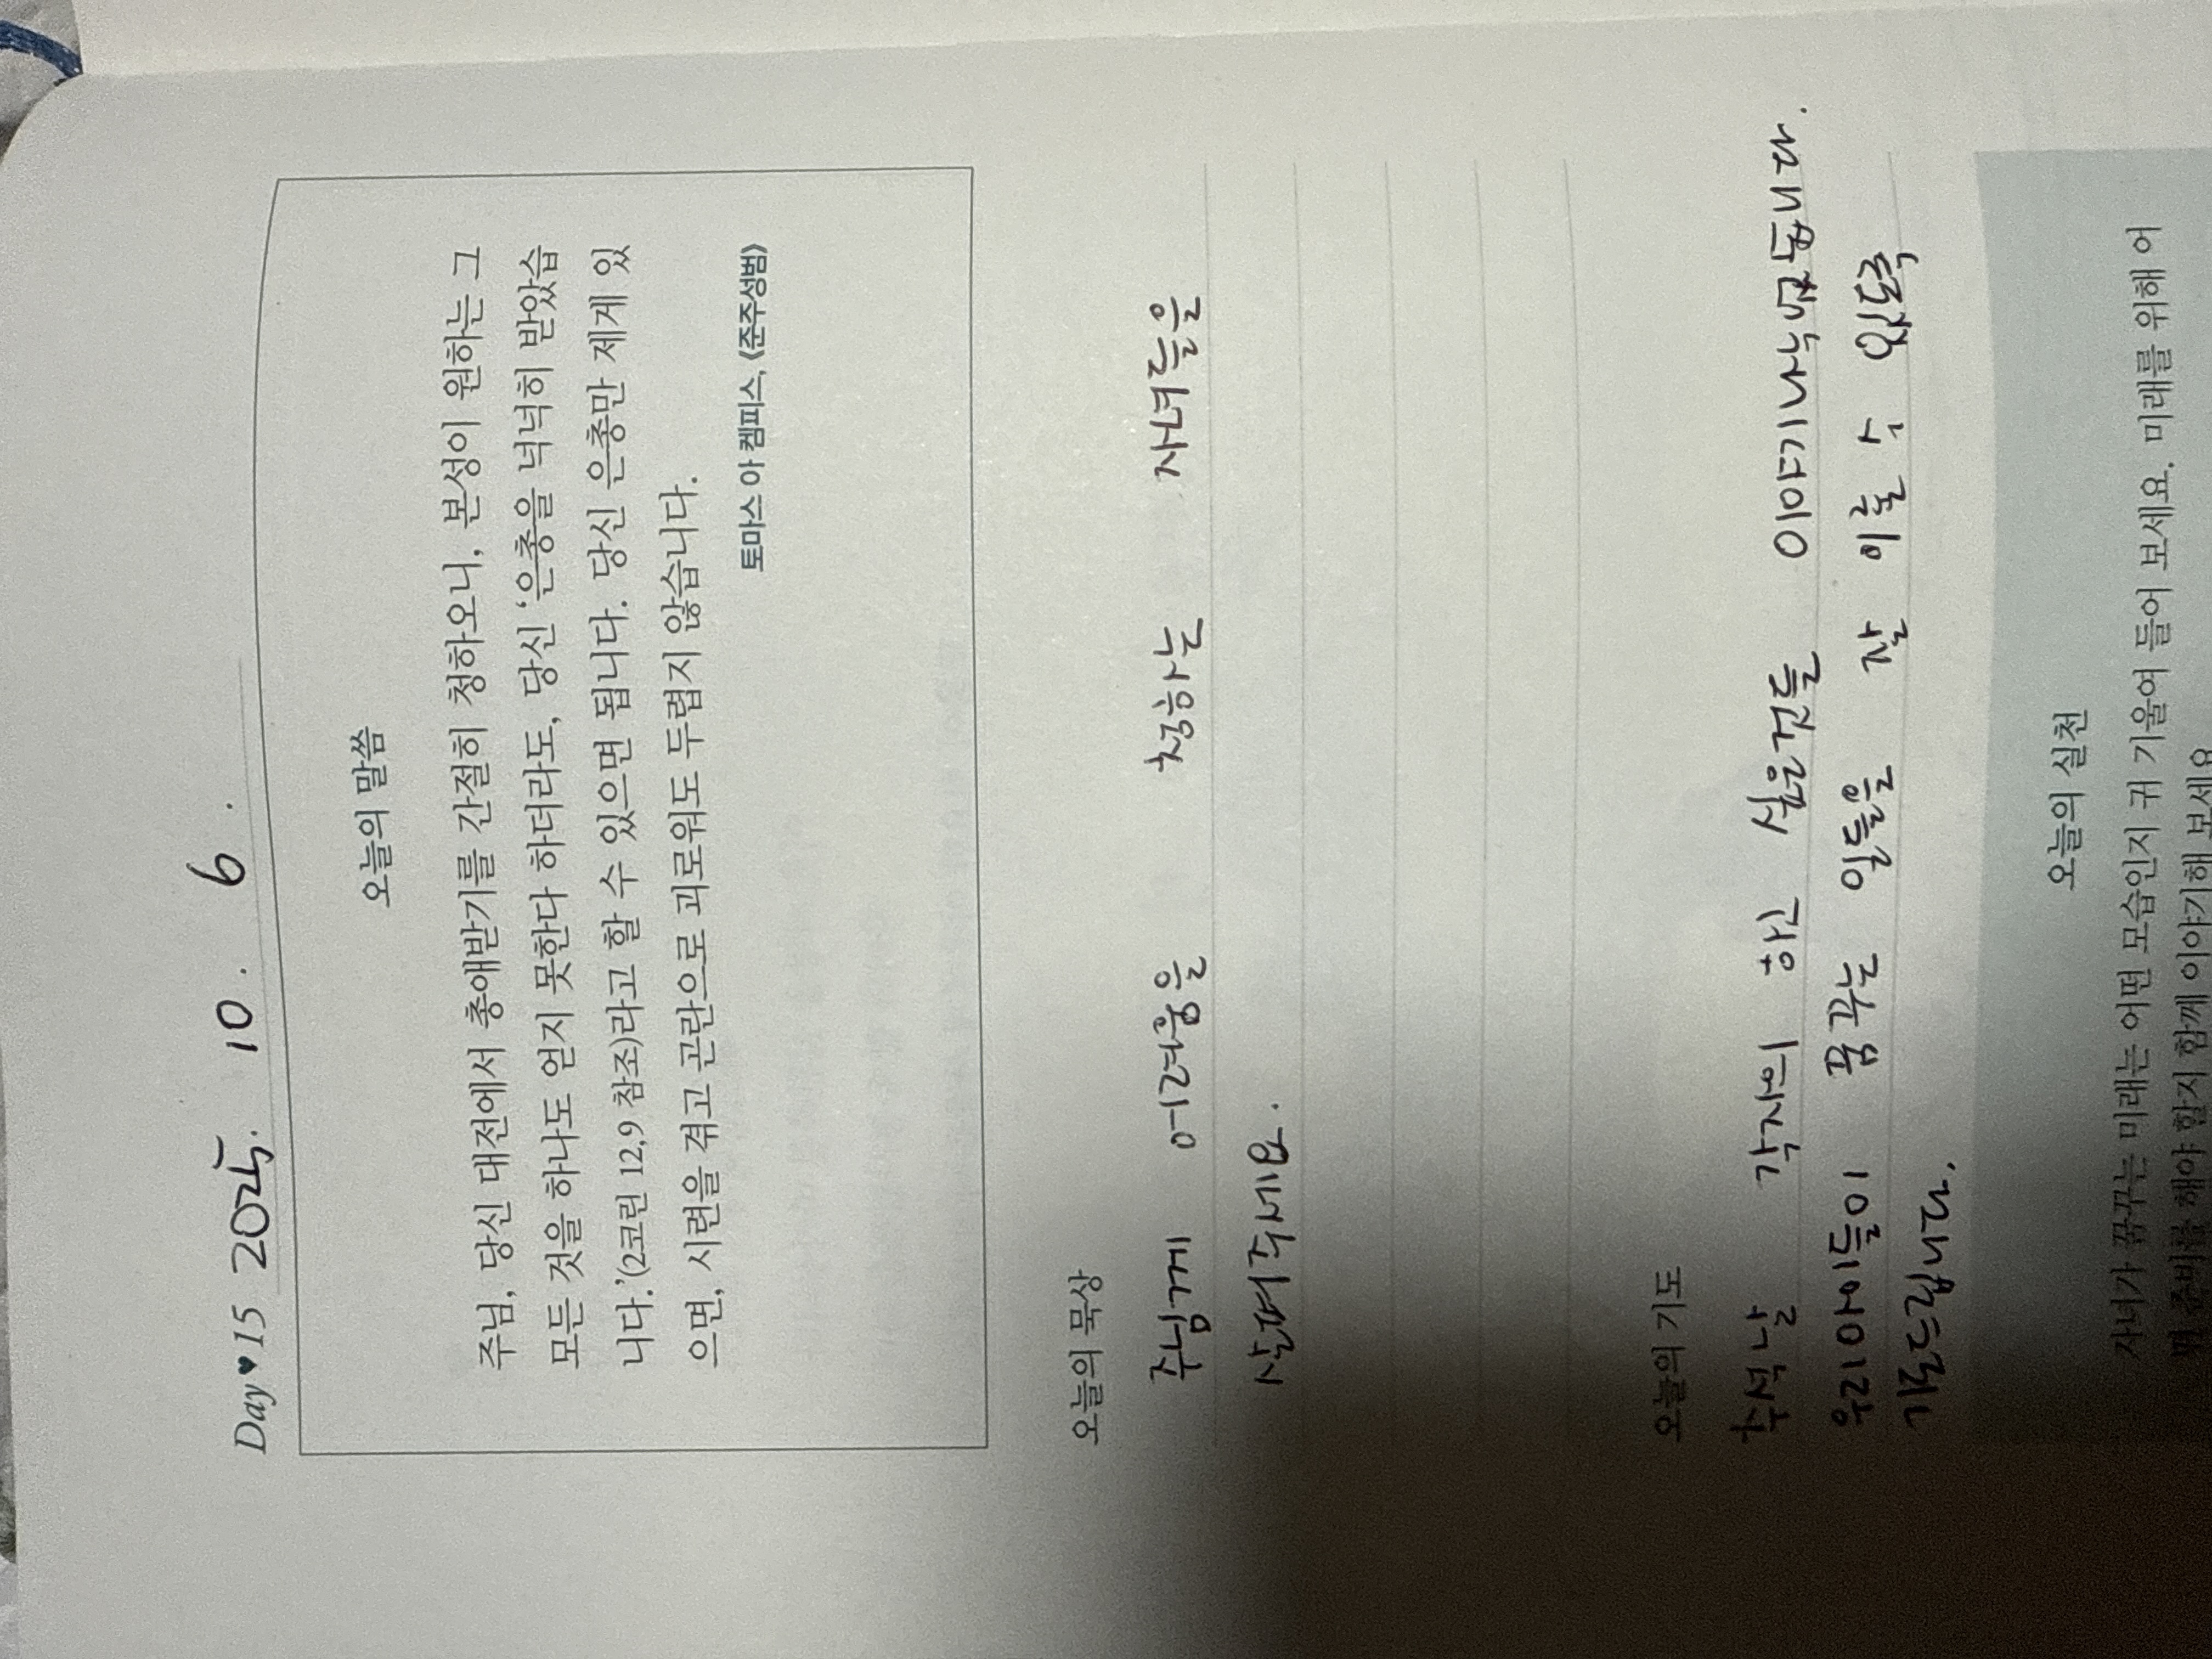 Day♥15 2025. 10. 6.
오늘의 말씀
주님, 당신 대전에서 총애받기를 간절히 청하오니, 본성이 원하는 그
모든 것을 하나도 얻지 못한다 하더라도, 당신 ‘은총을 넉넉히 받았습
니다.’(2코린 12,9 참조)라고 할 수 있으면 됩니다. 당신 은총만 제게 있
으면, 시련을 겪고 곤란으로 괴로워도 두렵지 않습니다.
토마스 아 켐피스, 《준주성범》
오늘의 묵상
주님께 어려움을 청하는 자녀들을
살펴주세요.
오늘의 기도
추석날 각자의 하고 싶은것들 이야기나눠봤습니다.
우리아이들이 꿈꾸는 일들을 잘 이룰 수 있도록
기도드립니다.
오늘의 실천
자녀가 꿈꾸는 미래는 어떤 모습인지 귀 기울여 들어 보세요. 미래를 위해 어
떤 준비를 해야 할지 함께 이야기해 보세요